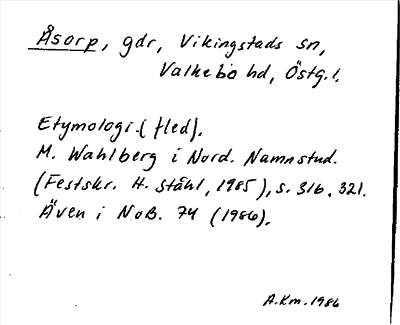 Åsorp, gdr, Vikingstads sn,
Valkebo hd, Östg.l.
Etymologi.(fled).
M. Wahlberg i Nord. Namnstud.
(Festskr. H. Ståhl, 1985), s. 316, 321.
Även i NoB. 74 (1986).
A.Km. 1986